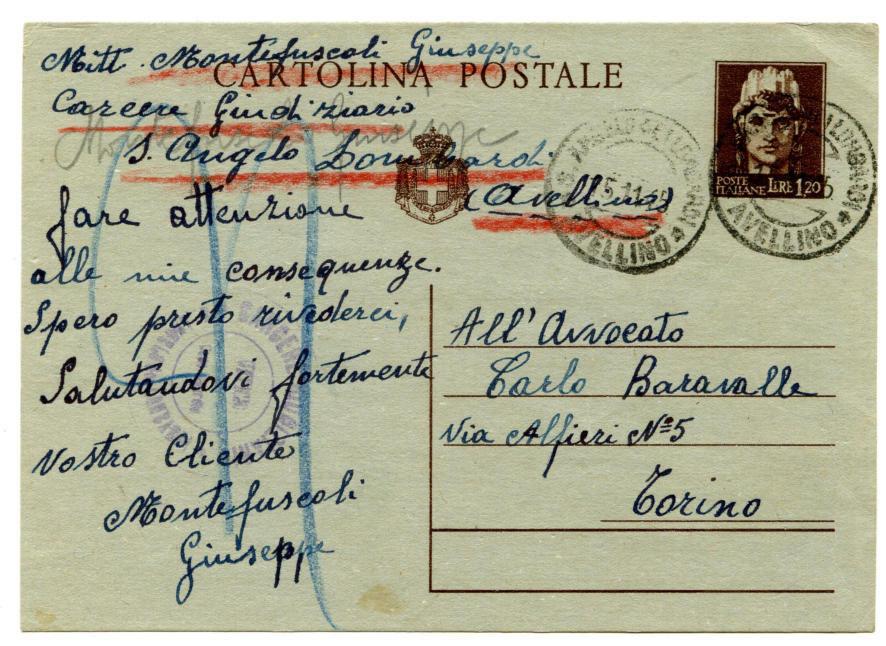 Mitt. Montefuscoli Giuseppe
CARTOLINA POSTALE
Carcere Giudiziario
S. Angelo Lombardi
(Avellino)
POSTE ITALIANE LIRE 1,20
AVELLINO
AVELLINO
fare attenzione
alle mie consequenze.
Spero presto rivederci,
Salutandovi fortemente
Vostro Cliente
Montefuscoli
Giuseppe
All' Avvocato
Carlo Baravalle
Via Alfieri Nº 5
Torino